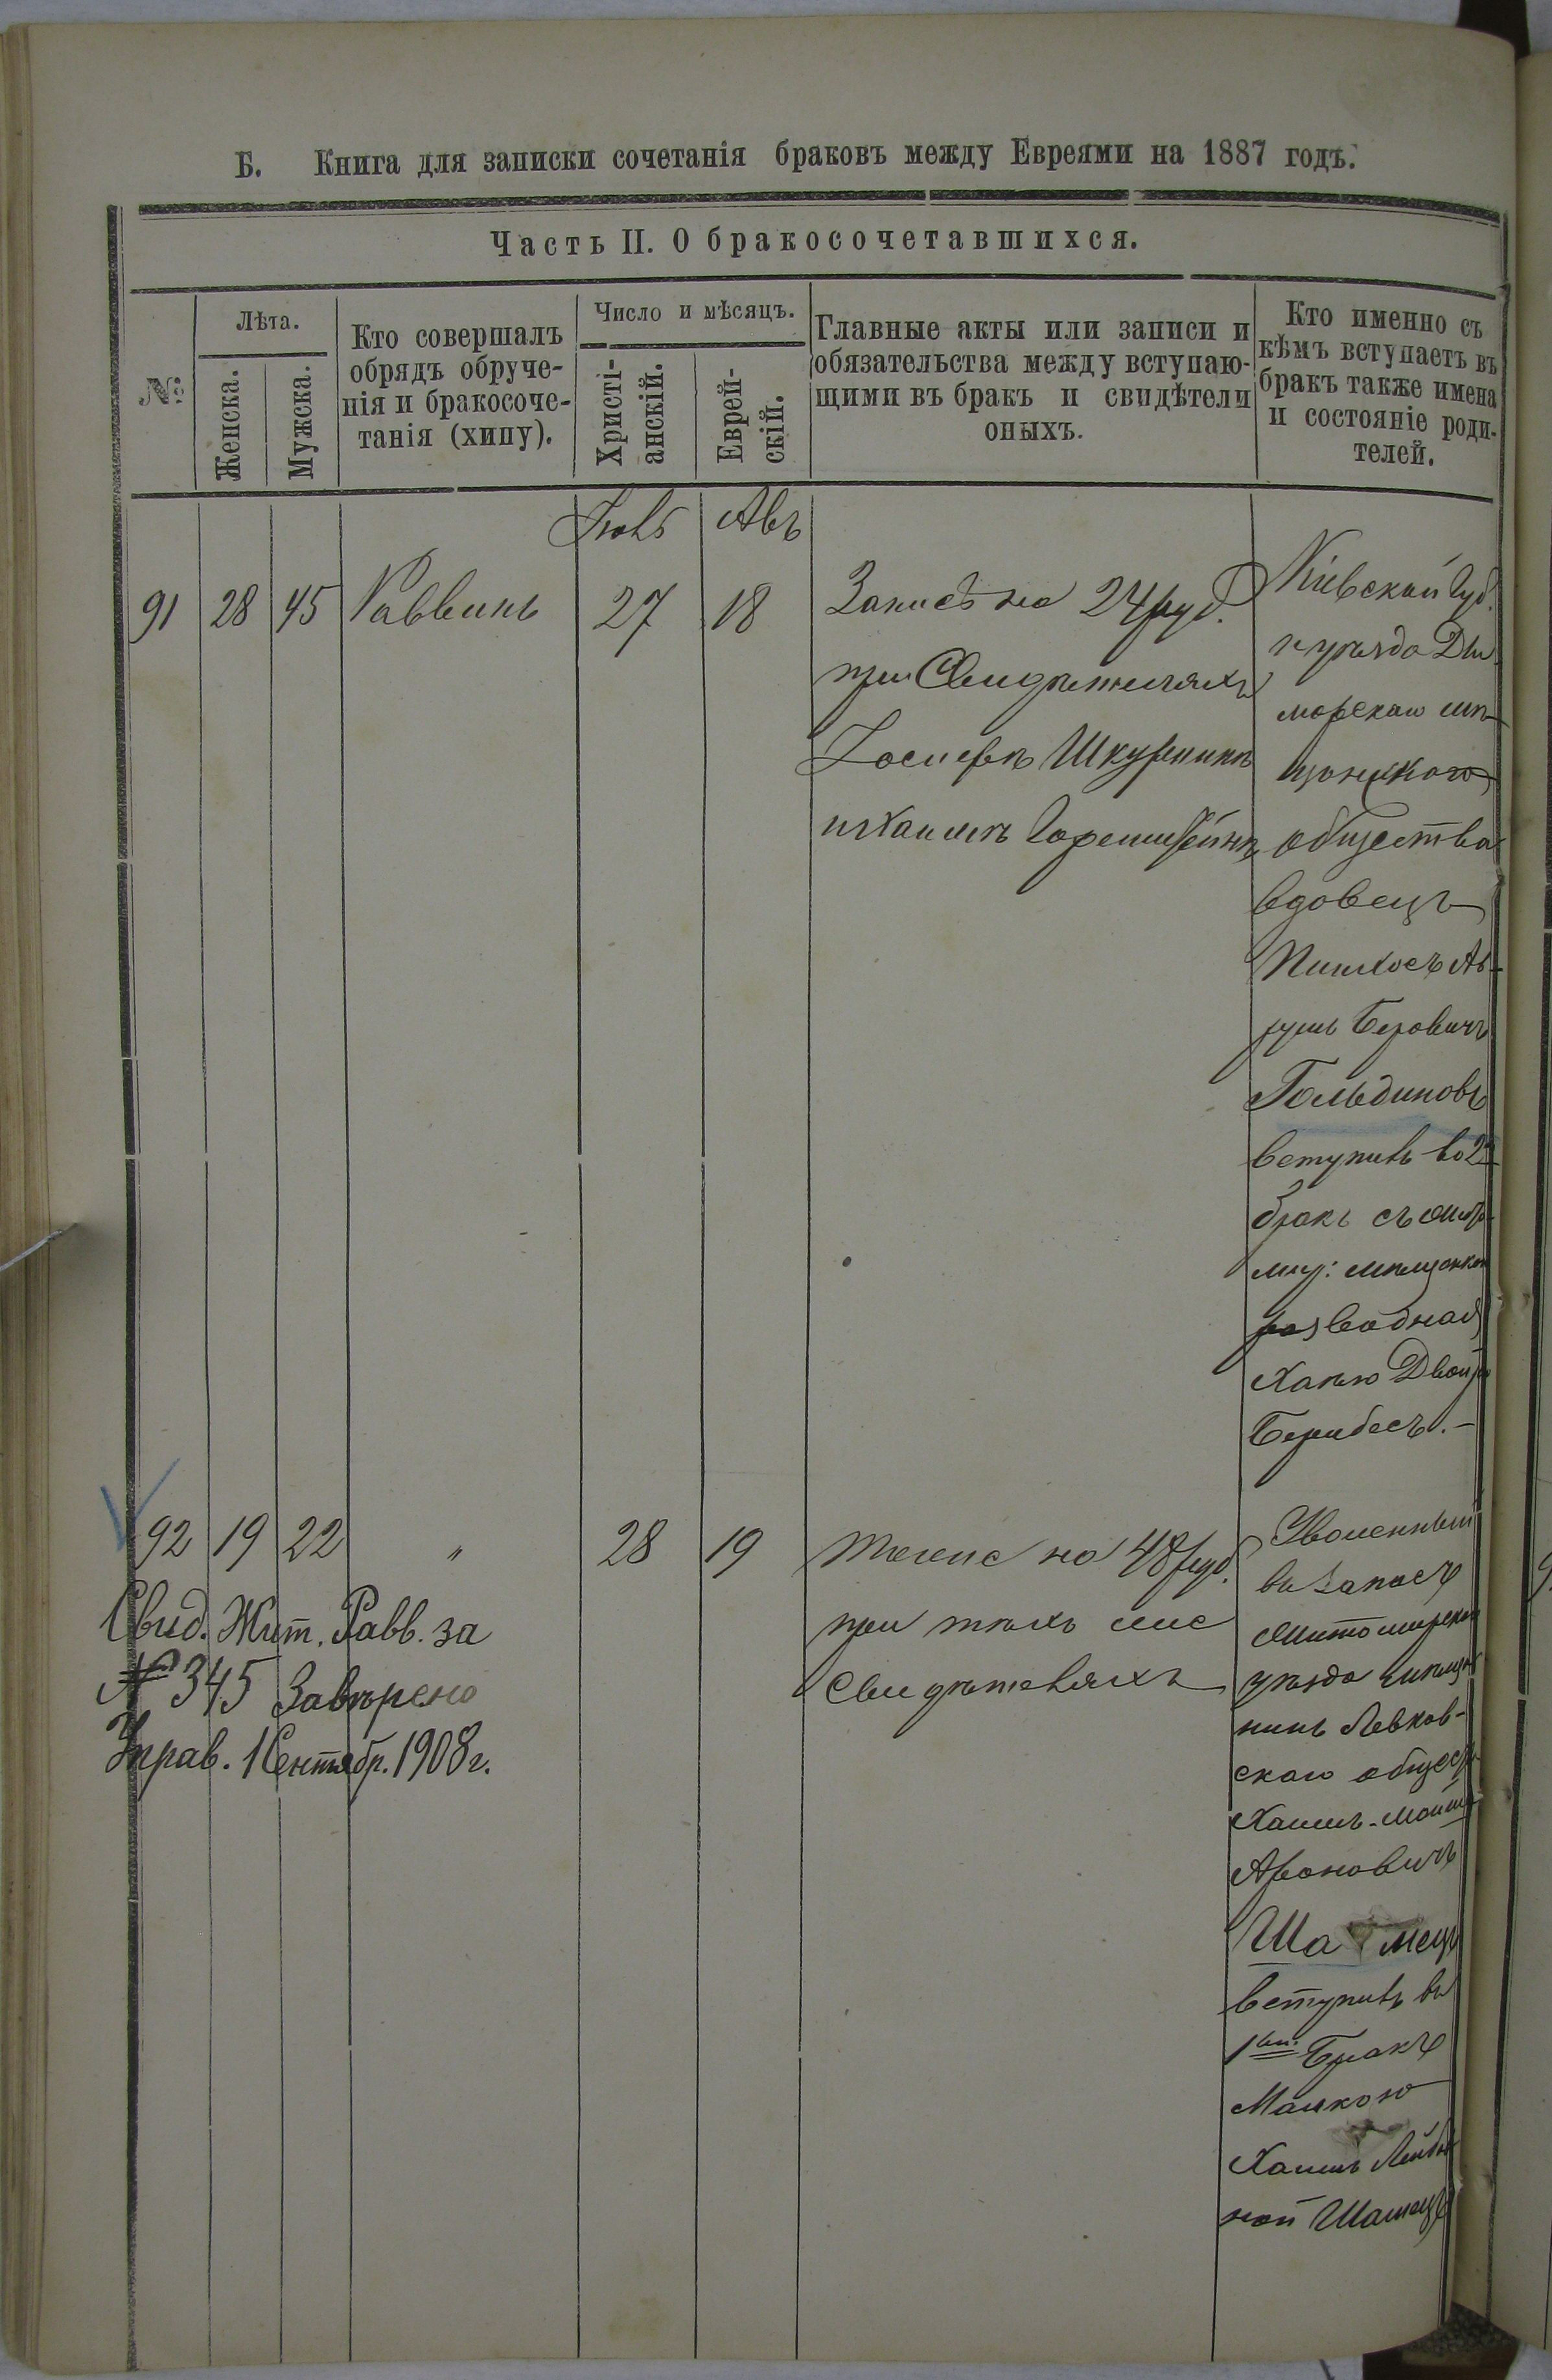 Б. Книга для записки сочетанія браковъ между Евреями на 1887 годъ.
Часть II. О бракосочетавшихся.
№
Лѣта.
Женска.
Мужска.
Кто совершалъ
обрядъ обруче-
нія и бракосоче-
танія (хипу).
Число и мѣсяцъ.
Христі-
анскій.
Еврей-
скій.
Главные акты или записи и
обязательства между вступаю-
щими въ бракъ и свидѣтели
оныхъ.
Кто именно съ
кѣмъ вступаетъ въ
бракъ также имена
и состояніе роди-
телей.
Авъ
91 28 45 Раввинъ 27 18
Запись на 24 руб.
при Свидѣтеляхъ
Іосифъ Шкурникъ
и Хаимъ
Кіевской Губ.
и уѣзда
щанскаго
общества
вдовецъ
Пинхосъ Ав-
румъ Беровичъ
Гольдиновъ
вступилъ во 2й
бракъ съ
разводная
Ханою
92 19 22 " 28 19
Тоже на 48 руб.
при тѣхъ же
Свидѣтеляхъ
Уволенный
въ запасъ
Житомирскаго
уѣзда мѣща
нинъ Левков-
скаго общест.
Хаимъ-Мойше
Ароновичъ
Ша мецъ
вступилъ въ
1ый Бракъ
Малкою
Хаимъ Лейбо
ной Шамецъ
Свид. Жит. Равв. за
№ 345 Завѣрено
Управ. 1 Сентябр. 1908 г.